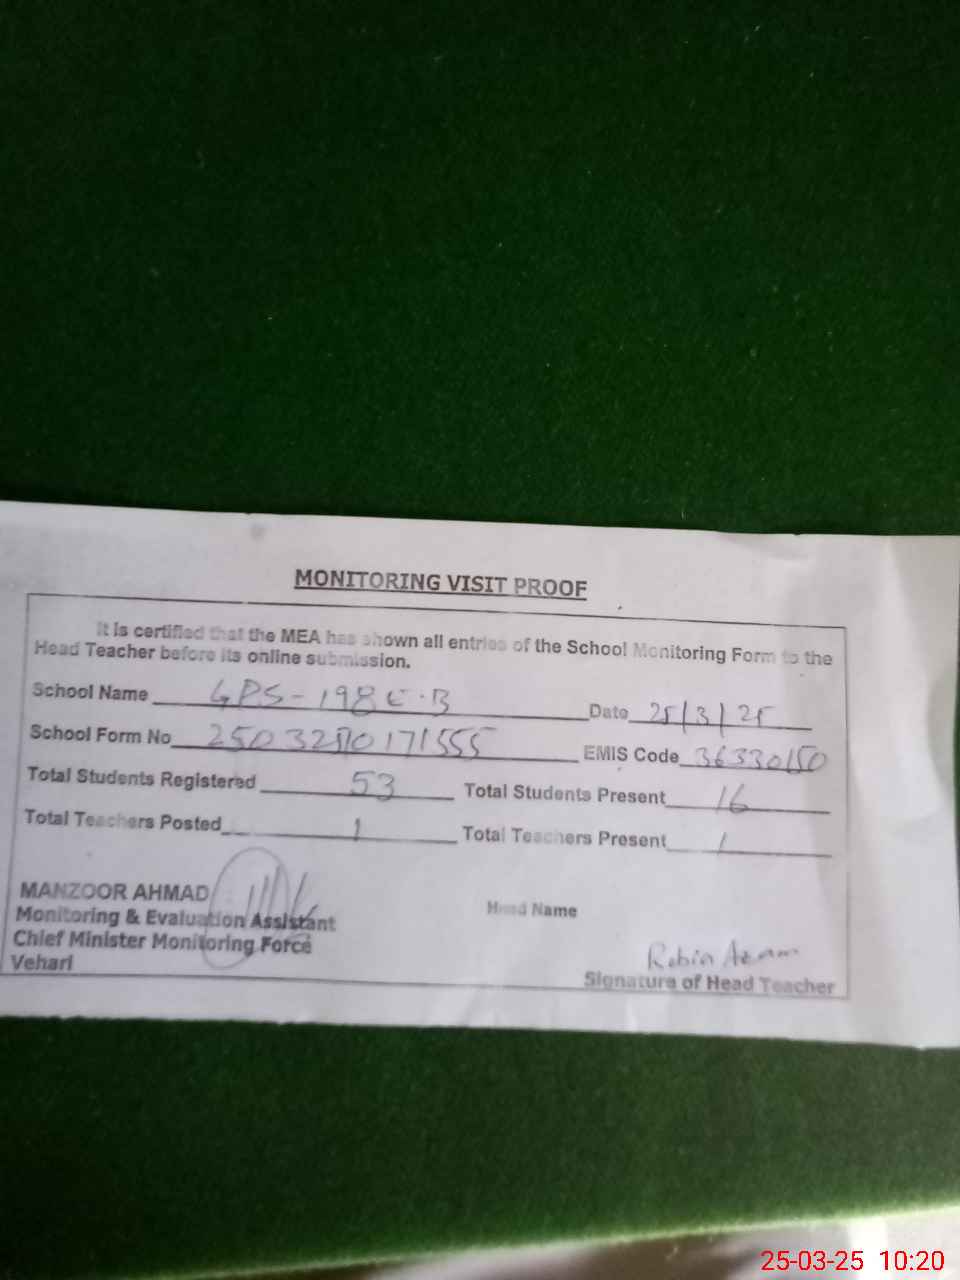 MONITORING VISIT PROOF
It is certified that the MEA has shown all entries of the School Monitoring Form to the
Head Teacher before its online submission.
School Name GPS-198 E.B Date 25/3/25
School Form No 250325 0171555 EMIS Code 36330150
Total Students Registered 53 Total Students Present 16
Total Teachers Posted 1 Total Teachers Present 1
MANZOOR AHMAD
Monitoring & Evaluation Assistant Head Name
Chief Minister Monitoring Force Robia Azam
Vehari Signature of Head Teacher
25-03-25 10:20